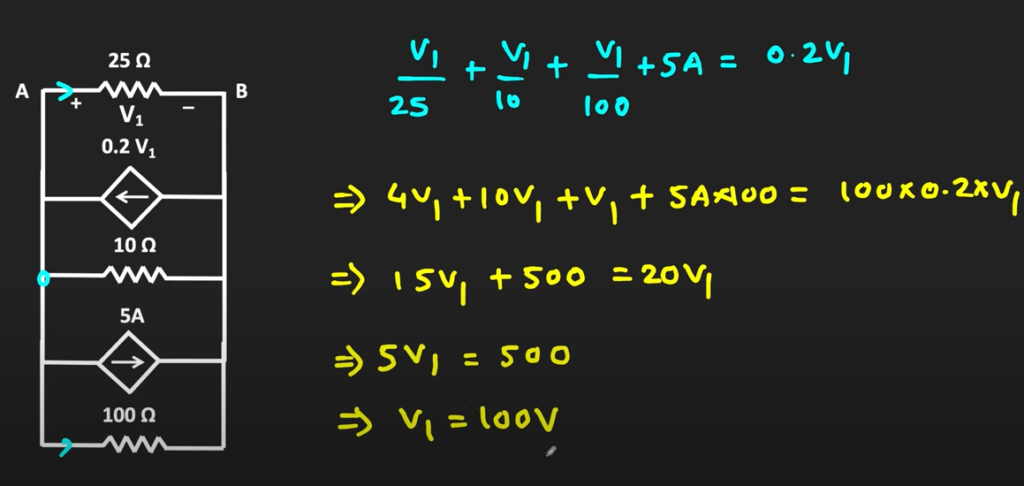 25 Ω
A
B
+
−
V₁
0.2 V₁
10 Ω
5A
100 Ω
V₁/25 + V₁/10 + V₁/100 + 5A = 0.2V₁
⇒ 4V₁ + 10V₁ + V₁ + 5A×100 = 100×0.2×V₁
⇒ 15V₁ + 500 = 20V₁
⇒ 5V₁ = 500
⇒ V₁ = 100V